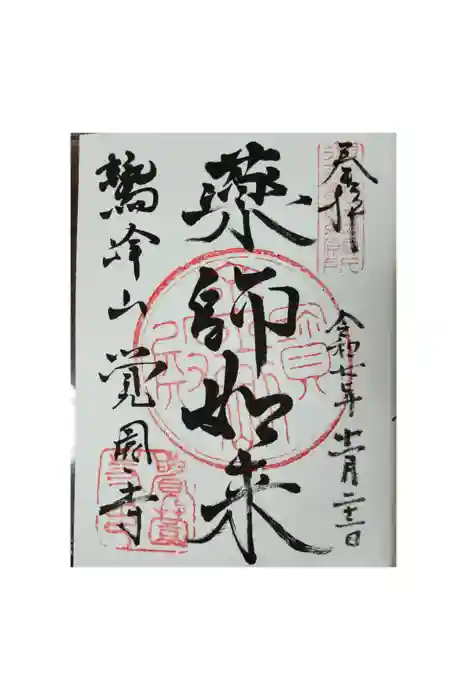 奉拝
令和七年 十一月 二十三日
薬師如来
鷲峰山覚園寺